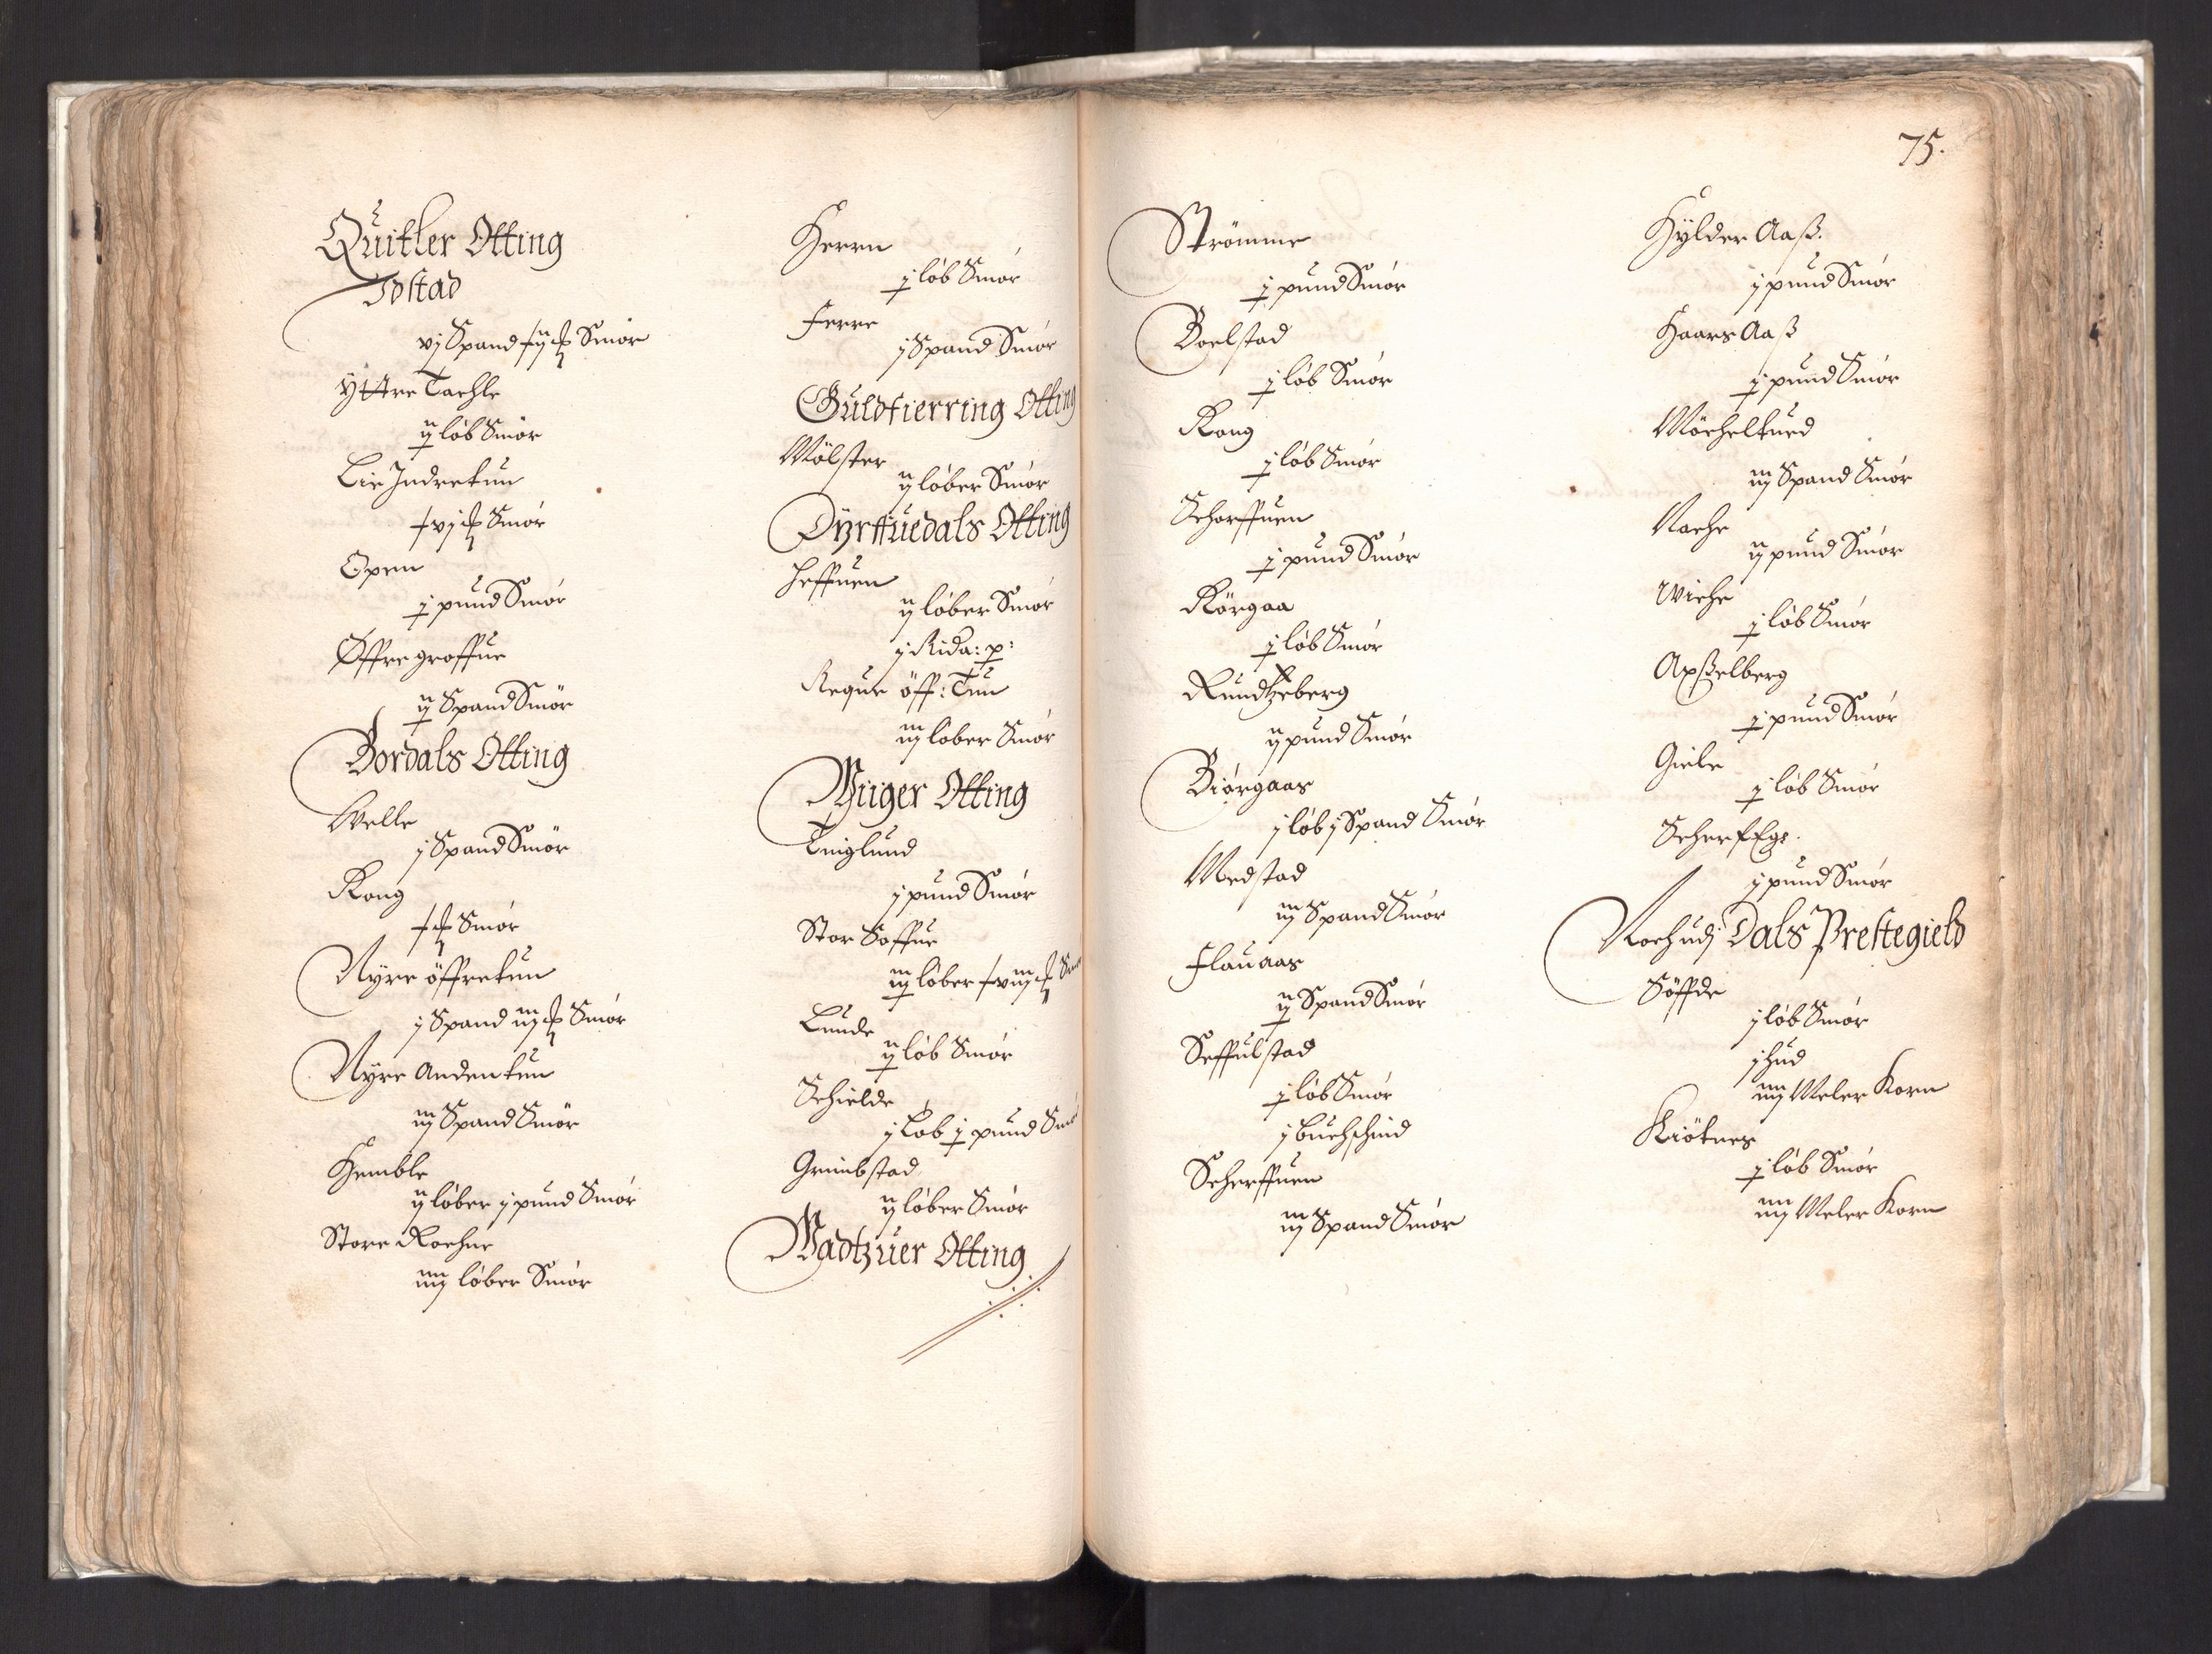 Quitler Otting
Idstad
vj Spand Smör
Yttre Taehle
ij löb Smör
Lie Indretun
Smör
Opem
j pund Smör
Øffregroffue
ij Spand Smör
Bordals Otting
Velle
j Spand Smör
Rong
Smör
Nyre öffretun
j Spand iij Smör
Nyre Anden tun
iij Spand Smör
Hemble
ij löber j pund Smör
Store Roehne
iiij löber Smör
Herrn
j löb Smör
Ferre
j Spand Smör
Guldfierring Otting
Mölster
ij löber Smör
Dyrffuedals Otting
Heffuen
ij löber Smör
j Rida: p:
Reque öff: Tun
iij löber Smör
Wiiger Otting
Tinglund
j pund Smör
Stor Soffue
iij löber
Lunde
ij löb Smör
Schielde
j Löb j pund
Grimbstad
ij löber Smör
Wadtzuer Otting
75.
Strömme
j pund Smör
Boelstad
j löb Smör
Rong
j löb Smör
Schorffuen
j pund Smör
Rörgaa
j löb Smör
Rundtzeberg
ij pund Smör
Biörgaas
j löb j Spand Smör
Medstad
iij Spand Smör
Flauaas
ij Spand Smör
Seffulstad
j löb Smör
j Buchschind
Scherffuen
iij Spand Smör
Hylder Aaß.
j pund Smör
Haars Aaß
j pund Smör
Möchelturd
iij Spand Smör
Naehe
ij pund Smör
Wiche
j löb Smör
Axßelberg
j pund Smör
Giele
j löb Smör
j pund Smör
Dals Prestegield
Söffde
j löb Smör
j Hud
iiij Meler Korn
Kiötnes
j löb Smör
iiij Meler Korn